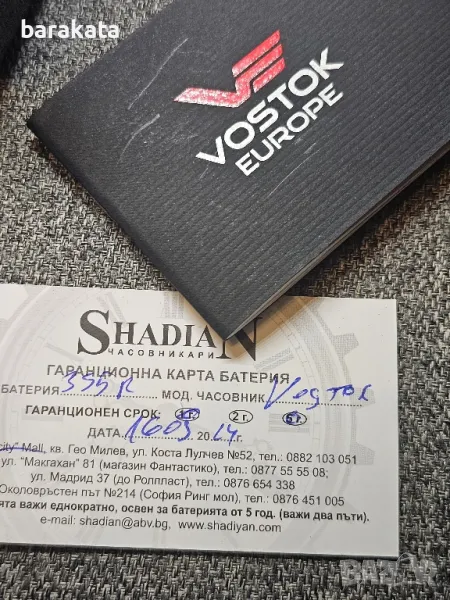 barakata
VOSTOK
EUROPE
SHADIAN
ЧАСОВНИКАРИ
ГАРАНЦИОННА КАРТА БАТЕРИЯ
БАТЕРИЯ МОД. ЧАСОВНИК Vostok
ГАРАНЦИОНЕН СРОК: 2 г.
ДАТА 16.05 20.24
city" Mall, кв. Гео Милев, ул. Коста Лулчев №52, тел.: 0882 103 051
ул. "Макгахан" 81 (магазин Фантастико), тел.: 0877 55 55 08;
ул. Мадрид 37 (до Роллпласт), тел.: 0876 654 338
Околовръстен път №214 (София Ринг мол), тел.: 0876 451 005
важи еднократно, освен за батерията от 5 год. (важи два пъти).
e-mail: shadian@abv.bg, www.shadiyan.com